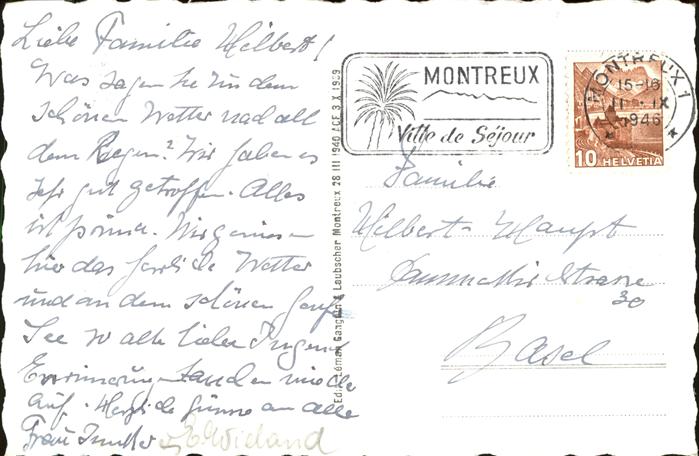 Liebe Familie Hilbert!
Was sagen Sie zu dem
schönen Wetter nach all
dem Regen? Wir haben es
sehr gut getroffen. Alles
ist prima. Wir genies-
hier das herrliche Wetter
und an dem schönen Genfer
See wo alle lieben Jugend
Erinnerungen
auf. Herzliche Grüsse an alle
Frau u. E. Wieland
Edit. Léman Gangain & Laubscher Montreux 28 III 1940 ACF 3 X 1939
MONTREUX
Ville de Séjour
MONTREUX 1
15-16
IX
1946
10 HELVETIA
Familie
Hilbert-Haupt
Strasse
30
Basel